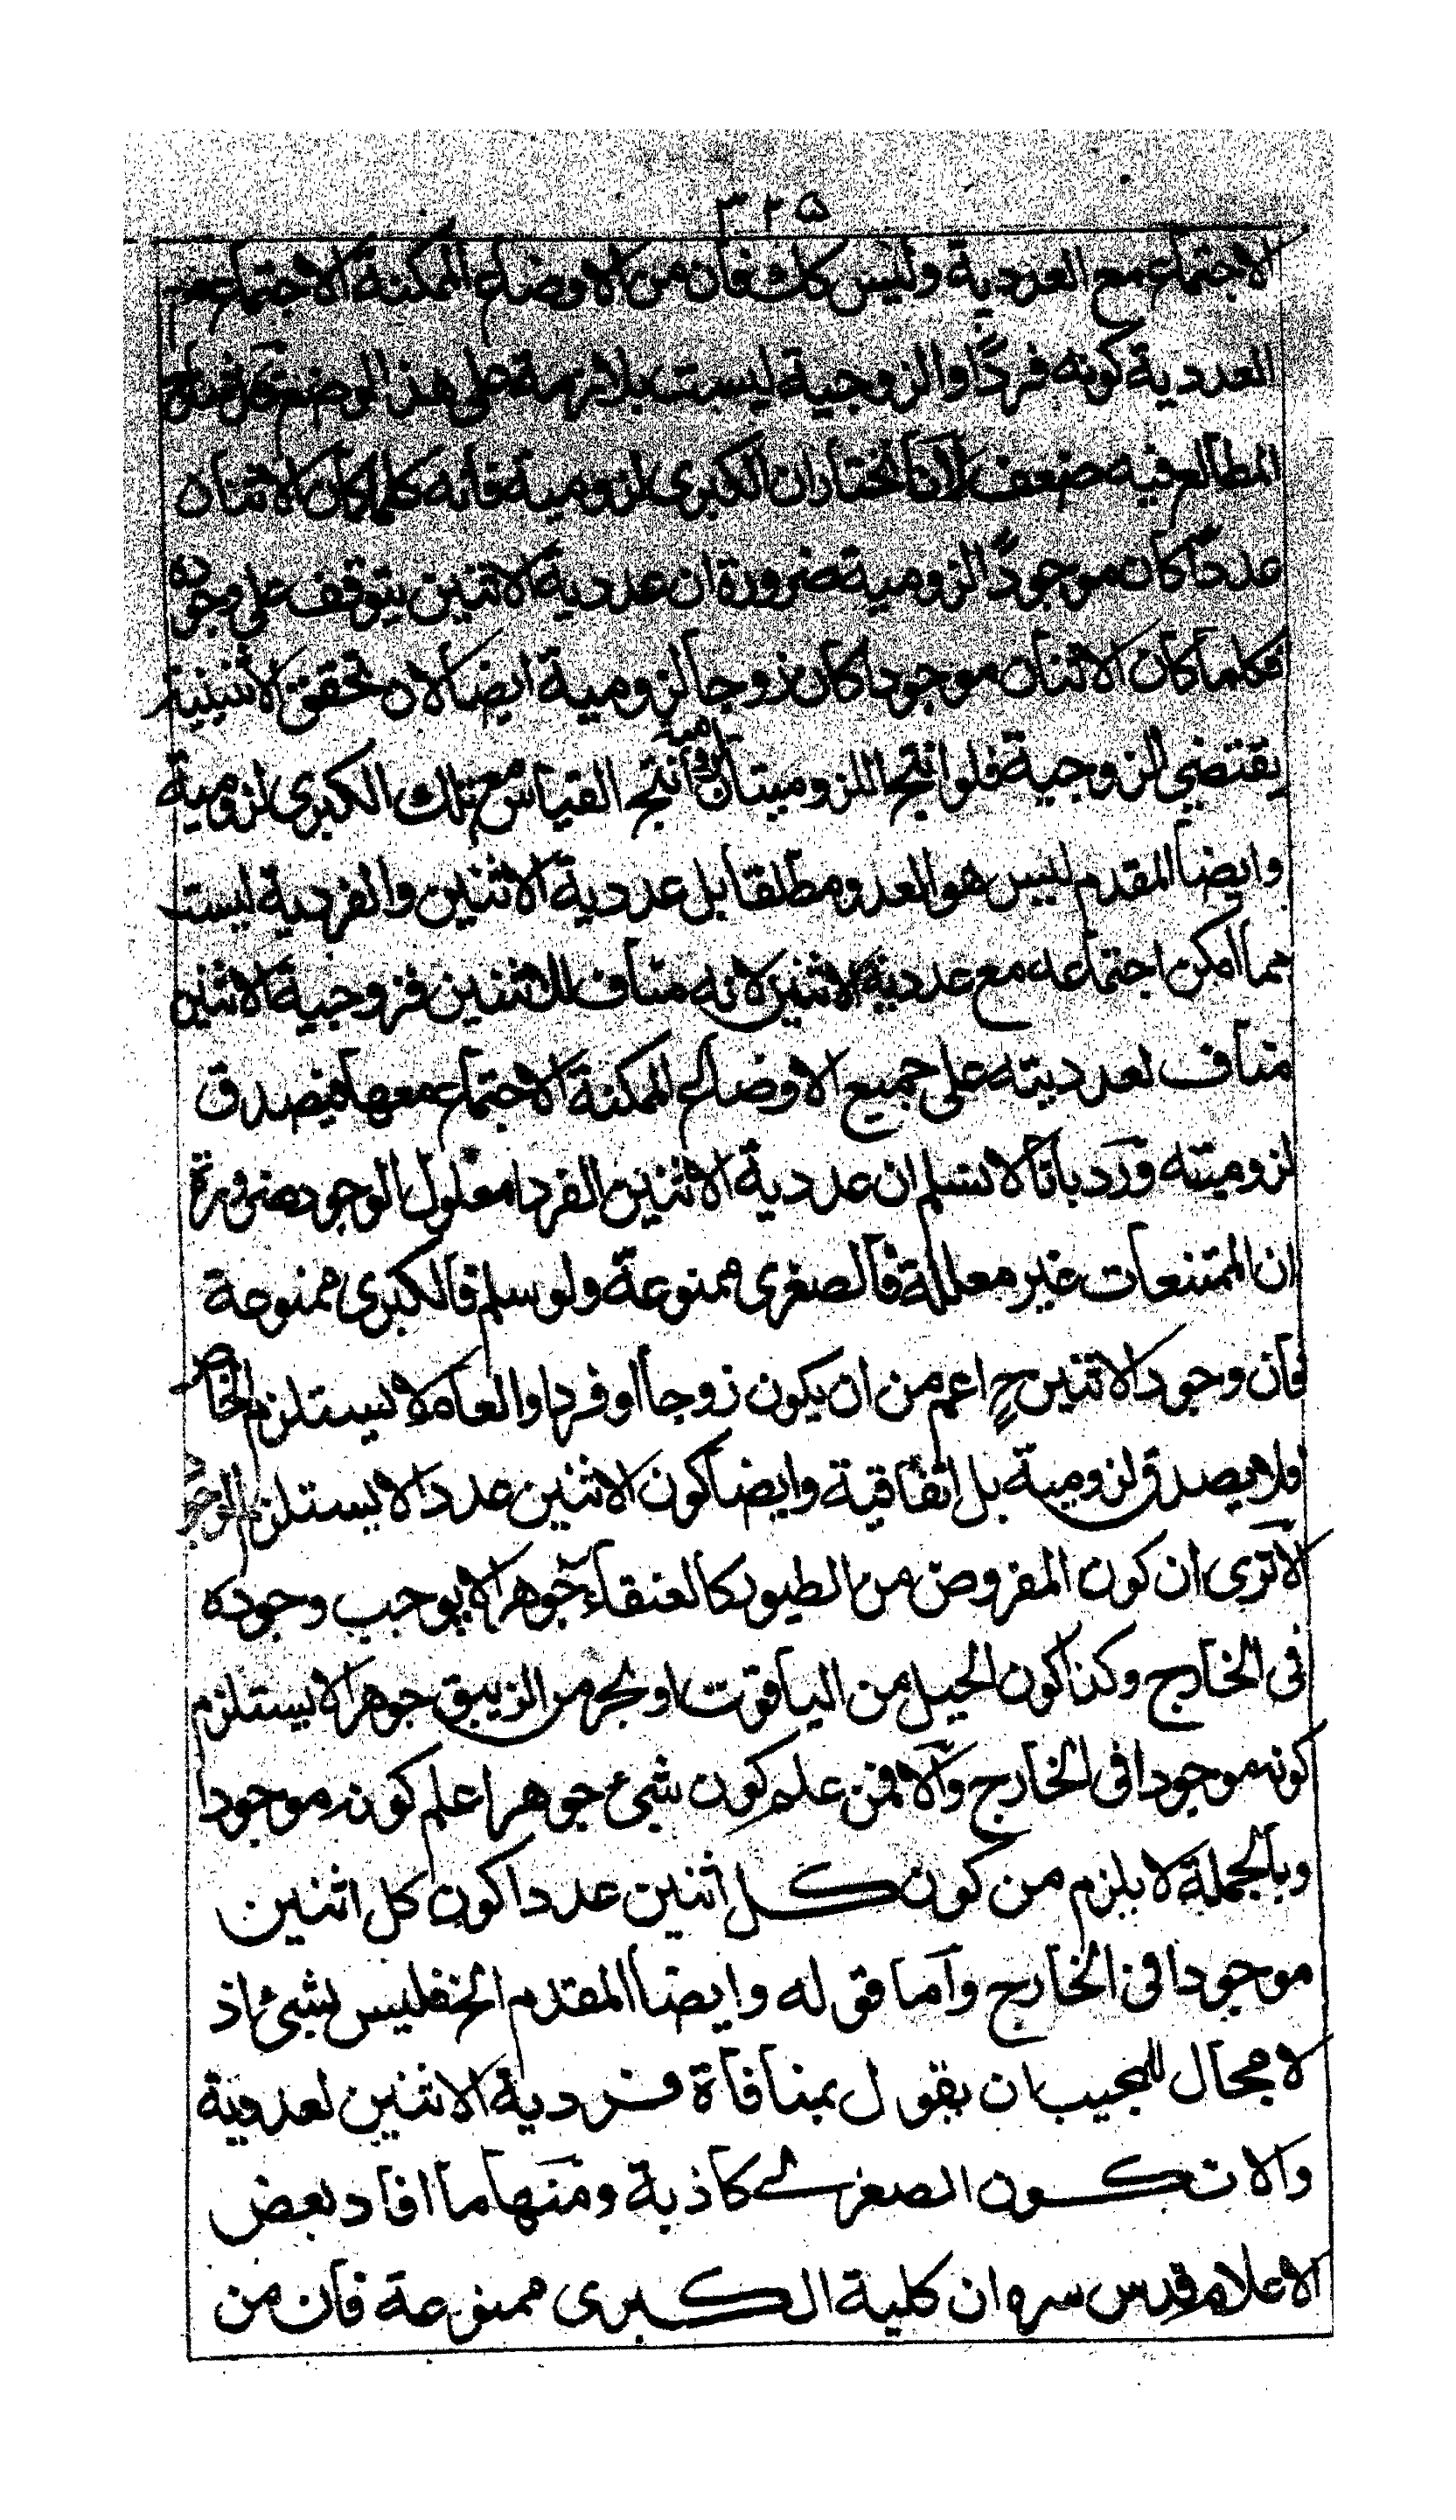 ٣٢٥
الاجتماع مع العددية وليس كك فان من الاوضاع الممكنة الاجتماع مع
العددية كونه فردًا والزوجية ليست بلازمة على هذا الوضع قال في شرح
المطالع فيه ضعف لانا نختار ان الكبرى لزومية فانه كلما كان الاثنان
عددا كان موجودًا لزومية ضرورة ان عددية الاثنين يتوقف على وجوده
فكلما كان الاثنان موجودا كان زوجا لزومية ايضا لان تحقق الاثنينية
يقتضي الزوجية فلو انتج اللزوميتان لزومية انتج القياس مع تلك الكبرى لزومية
وايضا المقدم ليس هو العدد مطلقا بل عددية الاثنين والفردية ليست
مما امكن اجتماعه مع عددية الاثنين لانه مناف للاثنين فزوجية الاثنين
مناف لعدديته على جميع الاوضاع الممكنة الاجتماع معها فيصدق
لزوميته ورد بانا لا نسلم ان عددية الاثنين الفرد معلول الوجود ضرورة
ان الممتنعات غير معللة فالصغرى ممنوعة ولو سلم فالكبرى ممنوعة
فان وجود الاثنين ح اعم من ان يكون زوجا او فردا والعام لا يستلزم الخاص
فلا يصدق لزومية بل اتفاقية وايضا كون الاثنين عددا لا يستلزم الوجود
الا ترى ان كون المفروض من الطيور كالعنقاء جوهرا لا يوجب وجوده
فى الخارج وكذا كون الجبل من الياقوت او بحر من الزيبق جوهرا لا يستلزم
كونه موجودا فى الخارج والا فمن علم كون شئ جوهرا علم كونه موجودا
وبالجملة لا يلزم من كون كل اثنين عددا كون كل اثنين
موجودا فى الخارج واما قوله وايضا المقدم الخ فليس بشئ اذ
لا مجال للمجيب ان يقول بمنافاة فردية الاثنين لعددية
والا تكون الصغرى كاذبة ومنها ما افاد بعض
الاعلام قدس سره ان كلية الكبرى ممنوعة فان من